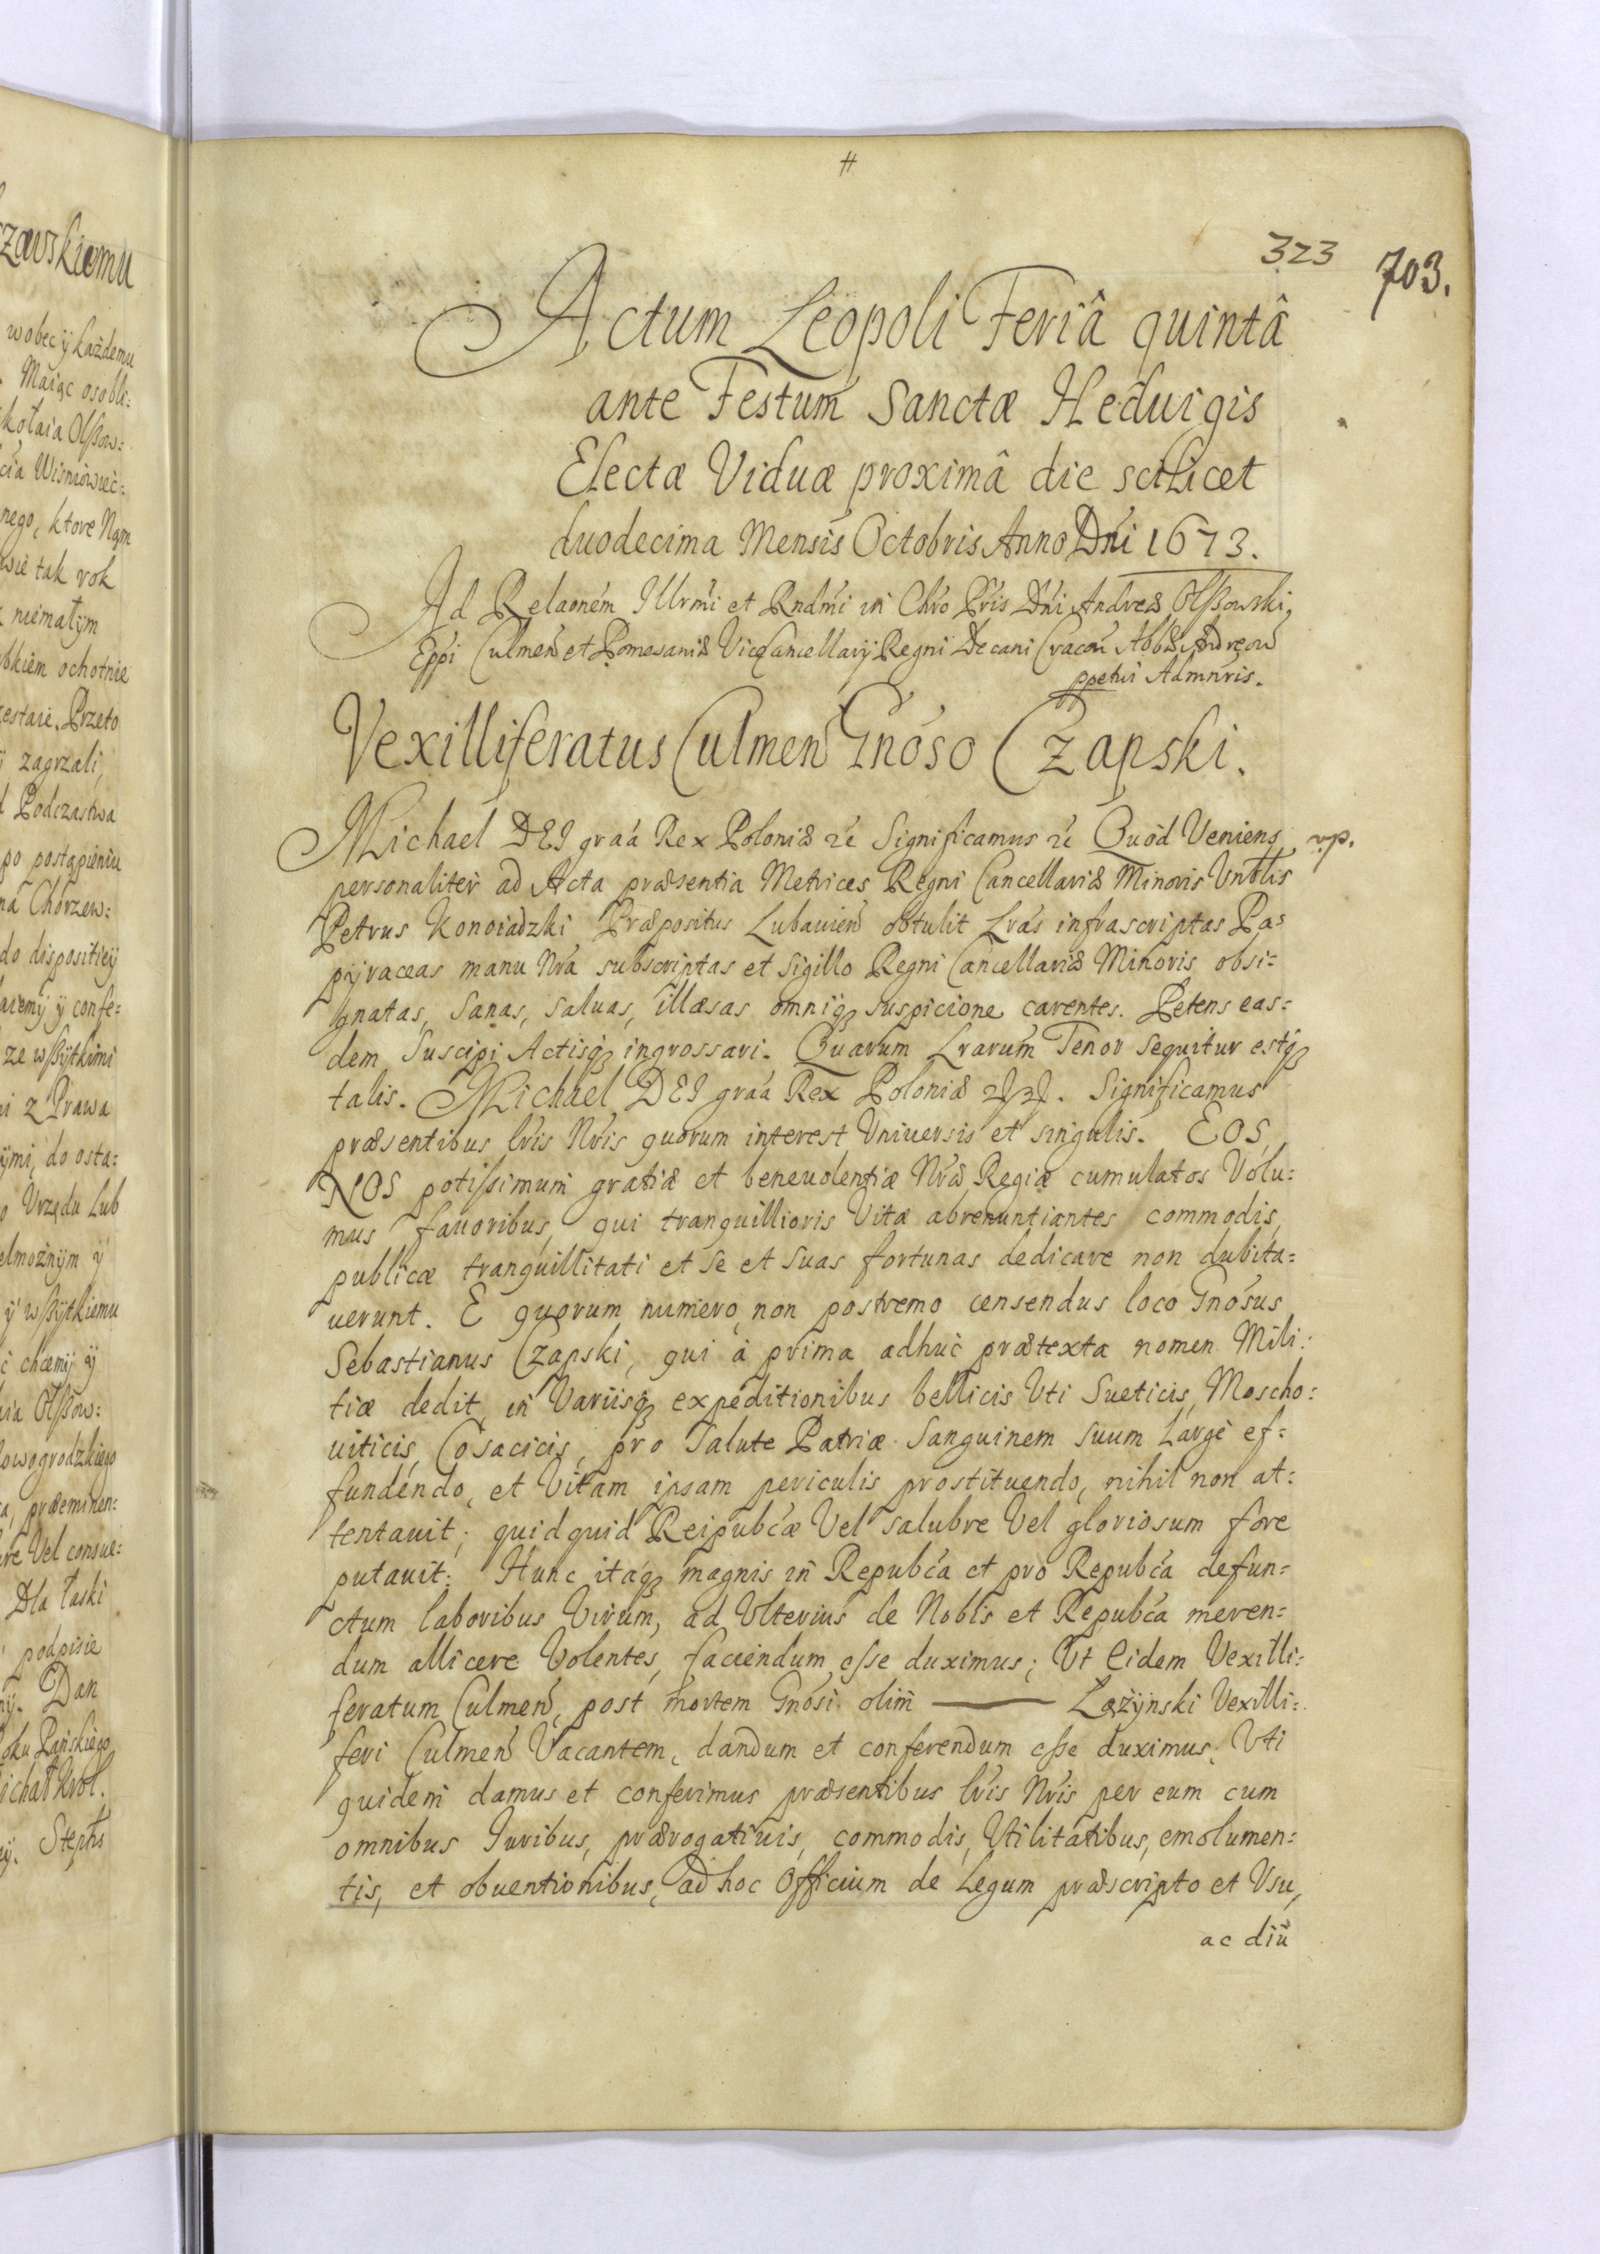 zawskiemu
wobec ÿ każdemu
Maiąc osobli=
kołaia Olßow=
cia Wisniowiec=
nego, ktore Nam
tak rok
niemałÿm
ochotnie
Przeto
zagrzali,
Podczastwa
po postąpieniu
na Chorzew=
do dispositieÿ
ÿ confe=
ze wßÿtkimi
z Prawa
do osta=
Urzędu Lub
elmożnÿm ÿ
ÿ wßÿtkiemu
chcemÿ ÿ
Olßow=
owogrodzkiego
præeminen=
Vel consue=
Dla łaski
podpisie
Dan
Pańskiego
Krol.
Stephs
#
323 703.
Actum Leopoli Feriâ quintâ
ante Festum Sanctæ Heduigis
Electæ Viduæ proximâ die scilicet
duodecima Mensis Octobris Anno Dni 1673.
Ad Relaonem Illrmi et Rndmi in Chro Pris Dni Andreæ Olßowski,
Eppi Culmen et Pomesaniæ Vicecancellarÿ Regni Decani Cracou Abbæ Andreou
ppetui Admnris.
Vexilliferatus Culmen Gnoso Czapski.
Michael DEI graa Rex Poloniæ &c Significamus &c Quod Veniens vp.
personaliter ad Acta præsentia Metrices Regni Cancellariæ Minoris Vnblis
Petrus Konoiadzki Præpositus Lubauien obtulit Lras infrascriptas Pa=
pÿraceas manu Nra subscriptas et Sigillo Regni Cancellariæ Minoris obsi=
gnatas, Sanas, saluas, illæsas omniq suspicione carentes. Petens eas=
dem Suscipi Actisq ingrossari. Quarum Lrarum Tenor sequitur estq
talis. Michael DEI graa Rex Poloniæ &c &c. Significamus
præsentibus lris Nris quorum interest Vniuersis et singulis. EOS
NOS potissimum gratiæ et beneuolentiæ Nræ Regiæ cumulatos Volu=
mus fauoribus, qui tranquillioris Vitæ abrenuntiantes commodis,
publicæ tranquillitati et se et suas fortunas dedicare non dubita=
uerunt. E quorum numero, non postremo censendus loco Gnosus
Sebastianus Czapski, qui à prima adhuc prætexta nomen Mili=
tiæ dedit, in Variisq expeditionibus bellicis Vti Sueticis, Moscho=
uiticis, Cosacicis, pro salute Patriæ Sanguinem suum Largè ef=
fundendo, et Vitam ipsam periculis prostituendo, nihil non at=
tentauit, quidquid Reipubcæ Vel salubre Vel gloriosum fore
putauit: Hunc itaq magnis in Repubca et pro Repubca defun=
ctum laboribus Virum, ad Vlterius de Nobis et Repubca meren=
dum allicere Volentes, faciendum esse duximus; Vt Eidem Vexilli=
feratum Culmen, post mortem Gnosi olim —— Łążÿnski Vexilli=
feri Culmen Vacantem, dandum et conferendum esse duximus, Vti
quidem damus et conferimus præsentibus lris Nris per eum cum
omnibus Iuribus, prærogatiuis, commodis, Vtilitatibus, emolumen=
tis, et obuentionibus, ad hoc Officium de Legum præscripto et Vsu,
ac diu